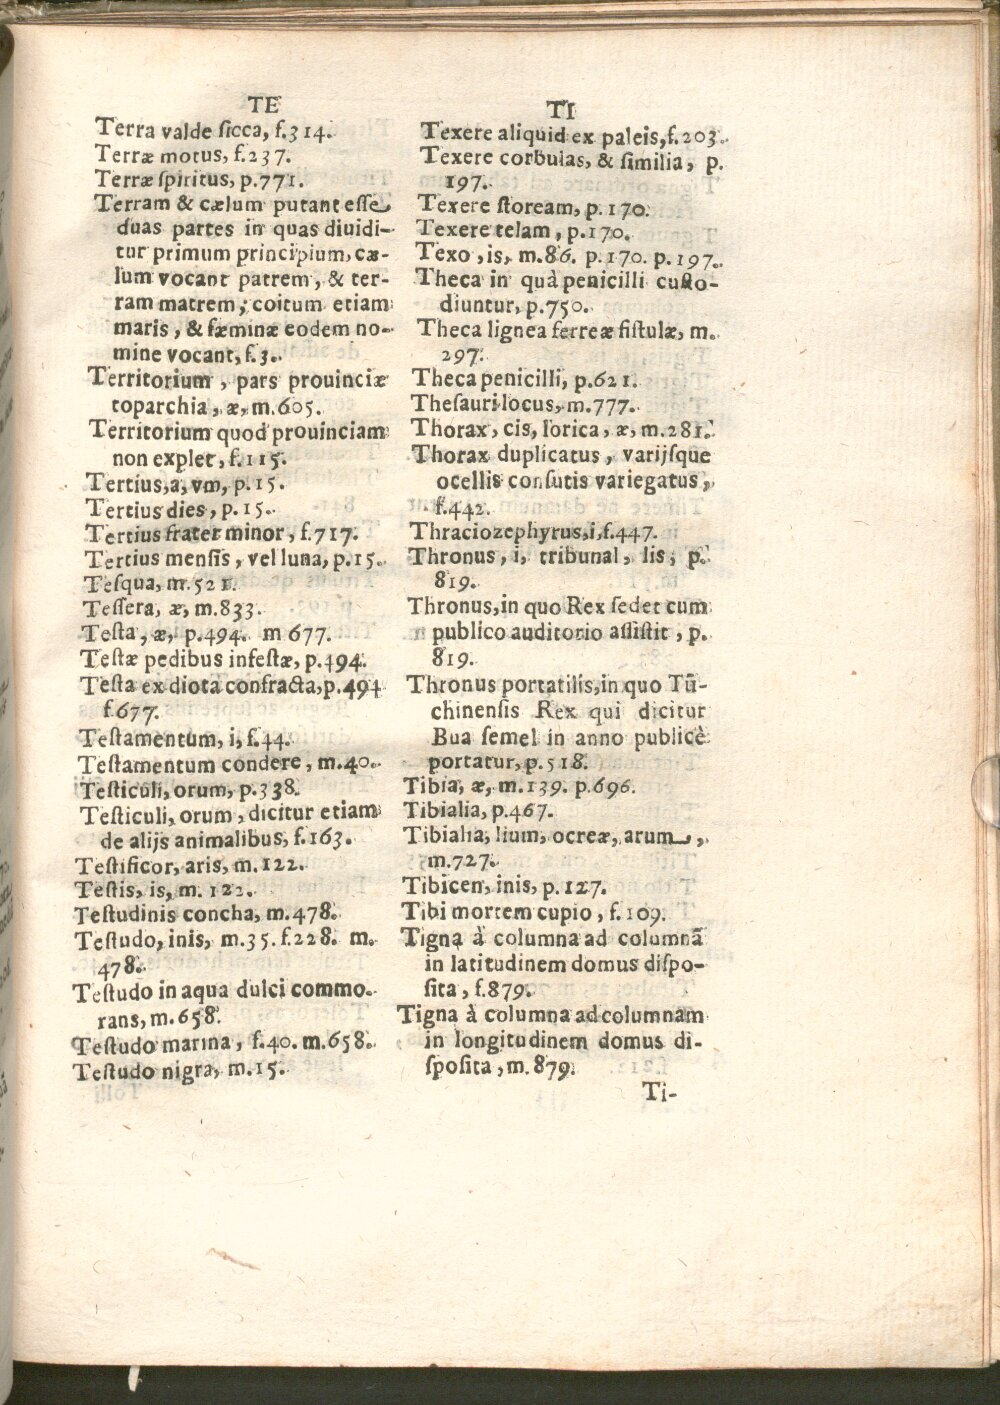 TE
Terra valde ſicca, f.314.
Terræ motus, f.237.
Terræ ſpiritus, p.771.
Terram & cælum putant eſſe
duas partes in quas diuidi-
tur primum principium, cæ-
lum vocant patrem, & ter-
ram matrem; coitum etiam
maris, & fæminæ eodem no-
mine vocant, f.3.
Territorium, pars prouinciæ
toparchia, æ, m.605.
Territorium quod prouinciam
non explet, f.115.
Tertius,a, vm, p.15.
Tertius dies, p.15.
Tertius frater minor, f.717.
Tertius menſis, vel luna, p.15.
Teſqua, m.521.
Teſſera, æ, m.833.
Teſta, æ, p.494. m 677.
Teſtæ pedibus infeſtæ, p.494.
Teſta ex diota confracta,p.494
f.677.
Teſtamentum, i, f.44.
Teſtamentum condere, m.40.
Teſticuli, orum, p.338.
Teſticuli, orum, dicitur etiam
de alijs animalibus, f.163.
Teſtificor, aris, m.122.
Teſtis, is, m. 122.
Teſtudinis concha, m.478.
Teſtudo, inis, m.35. f.228. m.
478.
Teſtudo in aqua dulci commo.
rans, m.658.
Teſtudo marina, f.40. m.658.
Teſtudo nigra, m.15.
TI
Texere aliquid ex paleis,f.203.
Texere corbulas, & ſimilia, p.
197.
Texere ſtoream, p.170.
Texere telam, p.170.
Texo, is, m.86. p.170. p.197.
Theca in quà penicilli cuſto-
diuntur, p.750.
Theca lignea ferreæ fiſtulæ, m.
297.
Theca penicilli, p.621.
Theſauri locus, m.777.
Thorax, cis, lorica, æ, m.281.
Thorax duplicatus, varijſque
ocellis conſutis variegatus,
f.442.
Thraciozephyrus,i,f.447.
Thronus, i, tribunal, lis, p.
819.
Thronus,in quo Rex ſedet cum
publico auditorio aſſiſtit, p.
819.
Thronus portatilis,in quo Tũ-
chinenſis Rex qui dicitur
Bua ſemel in anno publicè
portatur, p.518.
Tibia, æ, m.139. p.696.
Tibialia, p.467.
Tibialia, lium, ocreæ, arum,
m.727.
Tibicen, inis, p.127.
Tibi mortem cupio, f.109.
Tigna à columna ad columnã
in latitudinem domus diſpo-
ſita, f.879.
Tigna à columna ad columnam
in longitudinem domus di-
ſpoſita, m.879.
Ti-